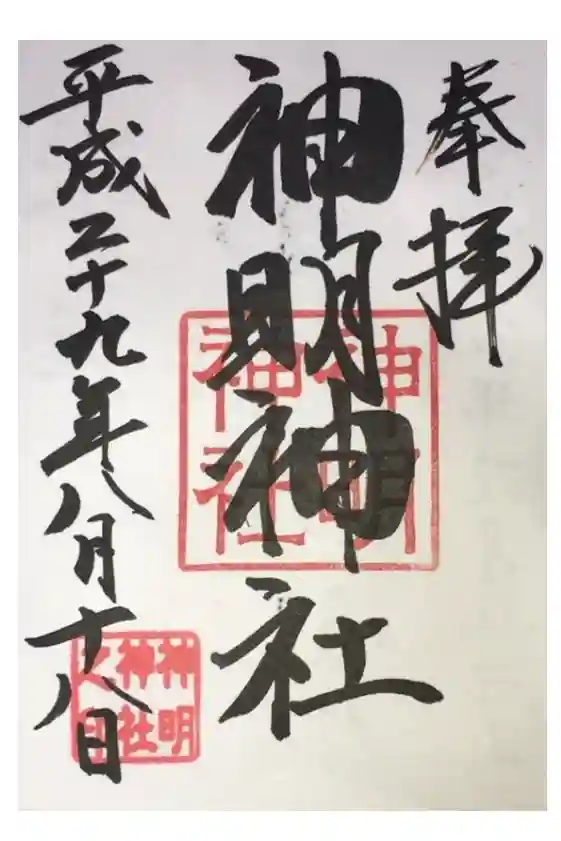 奉拝
神明神社
平成二十九年八月十八日
神明
神社
神明
神社
之印